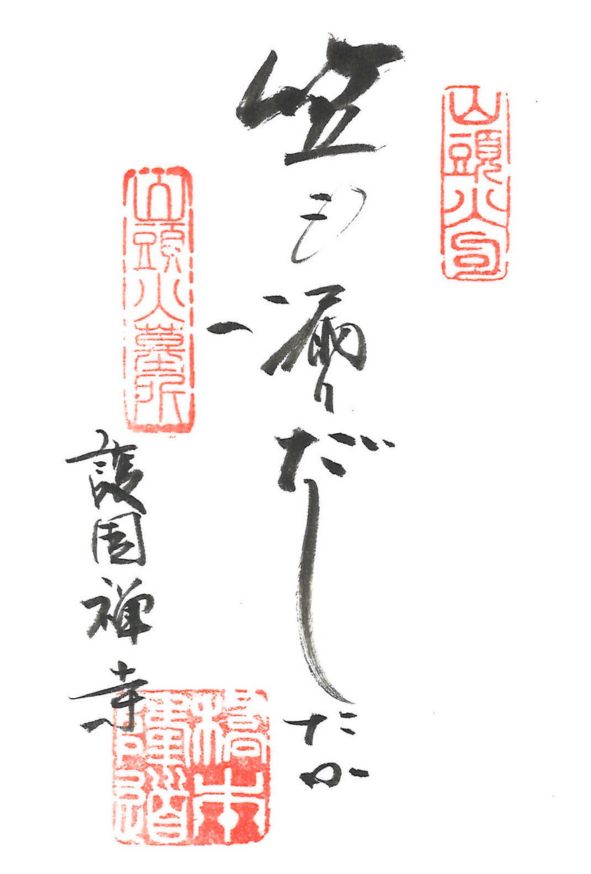 山頭火句
笠も漏りだしたか
山頭火墓所
護国禅寺
橋本
隆道